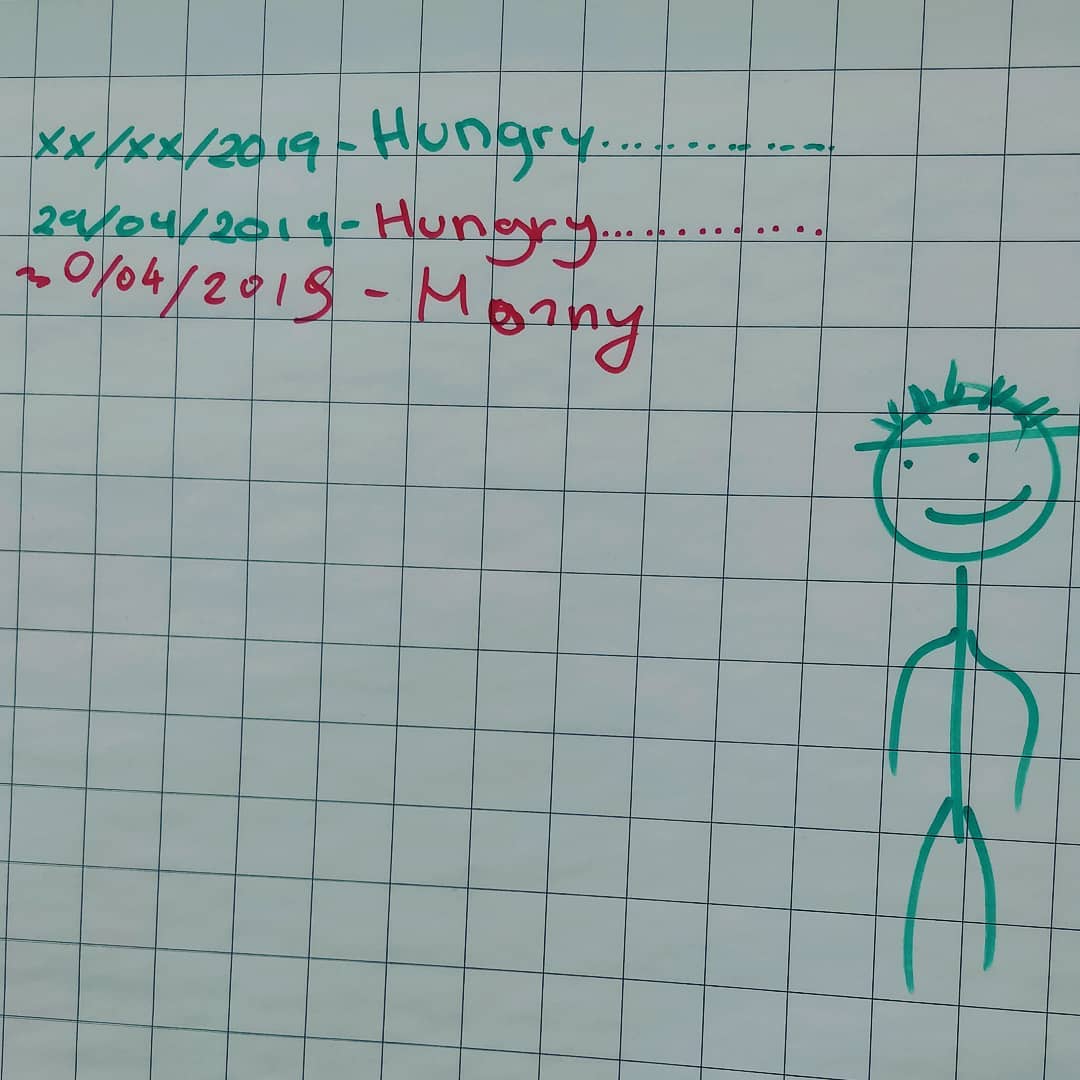 xx/xx/2019 - Hungry..............
29/04/2019 - Hungry.............
30/04/2019 - Horny